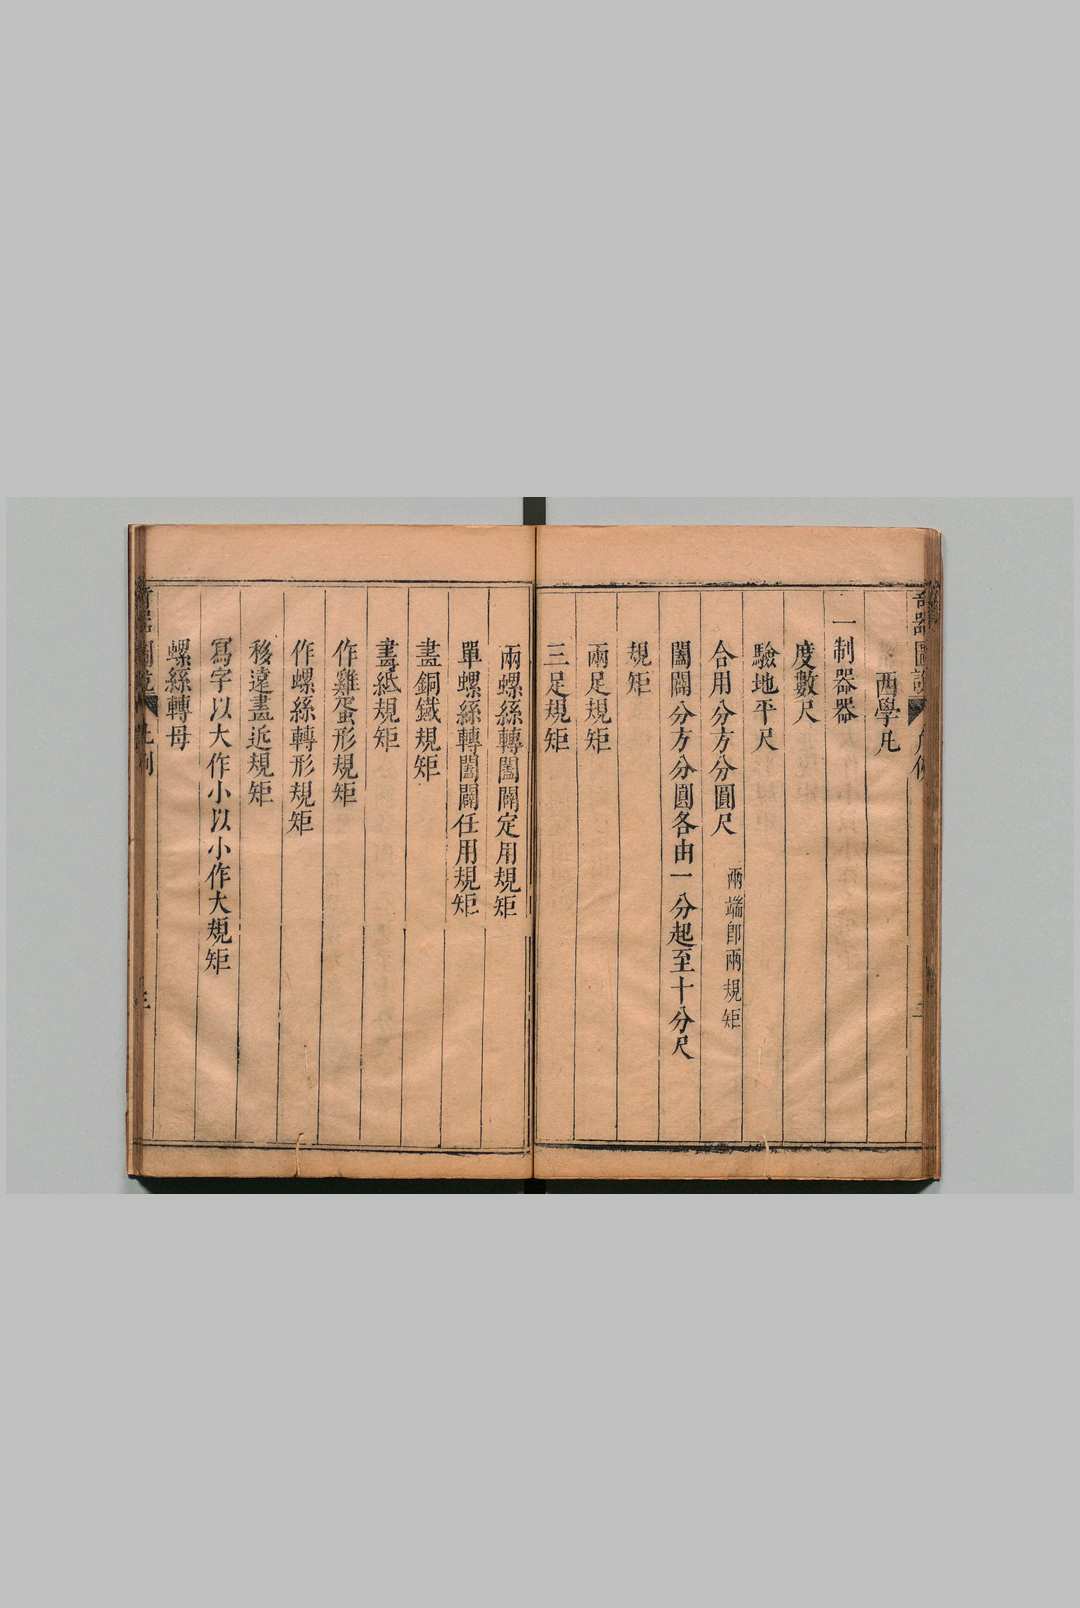 西學凡
一制器器
度數尺
驗地平尺
合用分方分圓尺
兩端即兩規矩
闔闢分方分圓各由一分起至十分尺
規矩
兩足規矩
三足規矩
兩螺絲轉闔闢定用規矩
單螺絲轉闔闢任用規矩
畫銅鐵規矩
畫紙規矩
作雞蛋形規矩
作螺絲轉形規矩
移遠畫近規矩
寫字以大作小以小作大規矩
螺絲轉母
奇器圖說